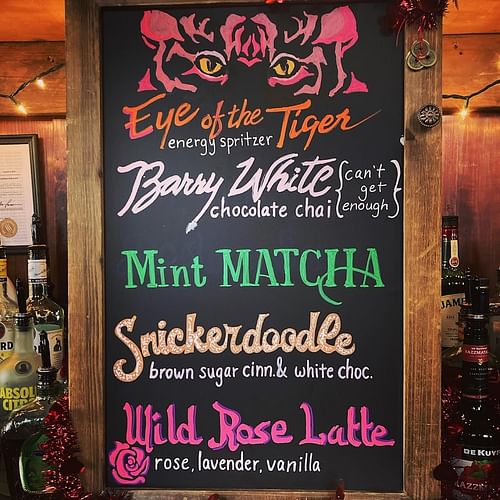 Eye of the Tiger
energy spritzer
Barry White {can't get enough}
chocolate chai
Mint MATCHA
Snickerdoodle
brown sugar cinn. & white choc.
Wild Rose Latte
rose, lavender, vanilla
ABSOL
CITR
JAME
DE KUY